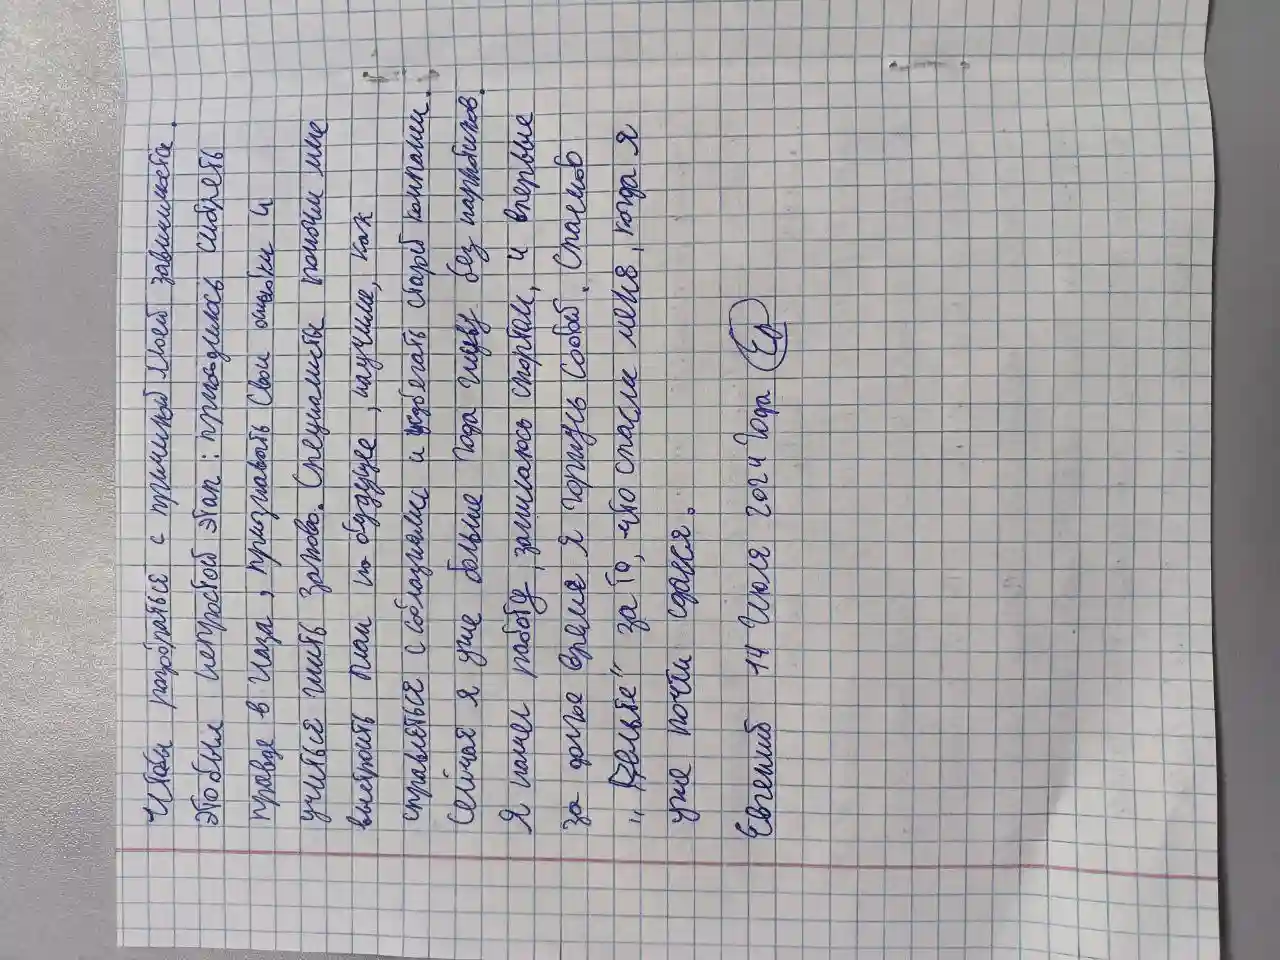 чтобы разобраться с причиной моей зависимости.
Это был непростой этап: приходилось смотреть
правде в глаза, признавать свои ошибки и
учиться жить заново. Специалисты помогли мне
выстроить план на будущее, научили, как
справляться с соблазнами и избегать старой компании.
Сейчас я уже больше года живу без наркотиков.
Я нашел работу, занимаюсь спортом, и впервые
за долгое время я горжусь собой. Спасибо
"Дельте" за то, что спасли меня, когда я
уже почти сдался.
Евгений 14 Июля 2024 года